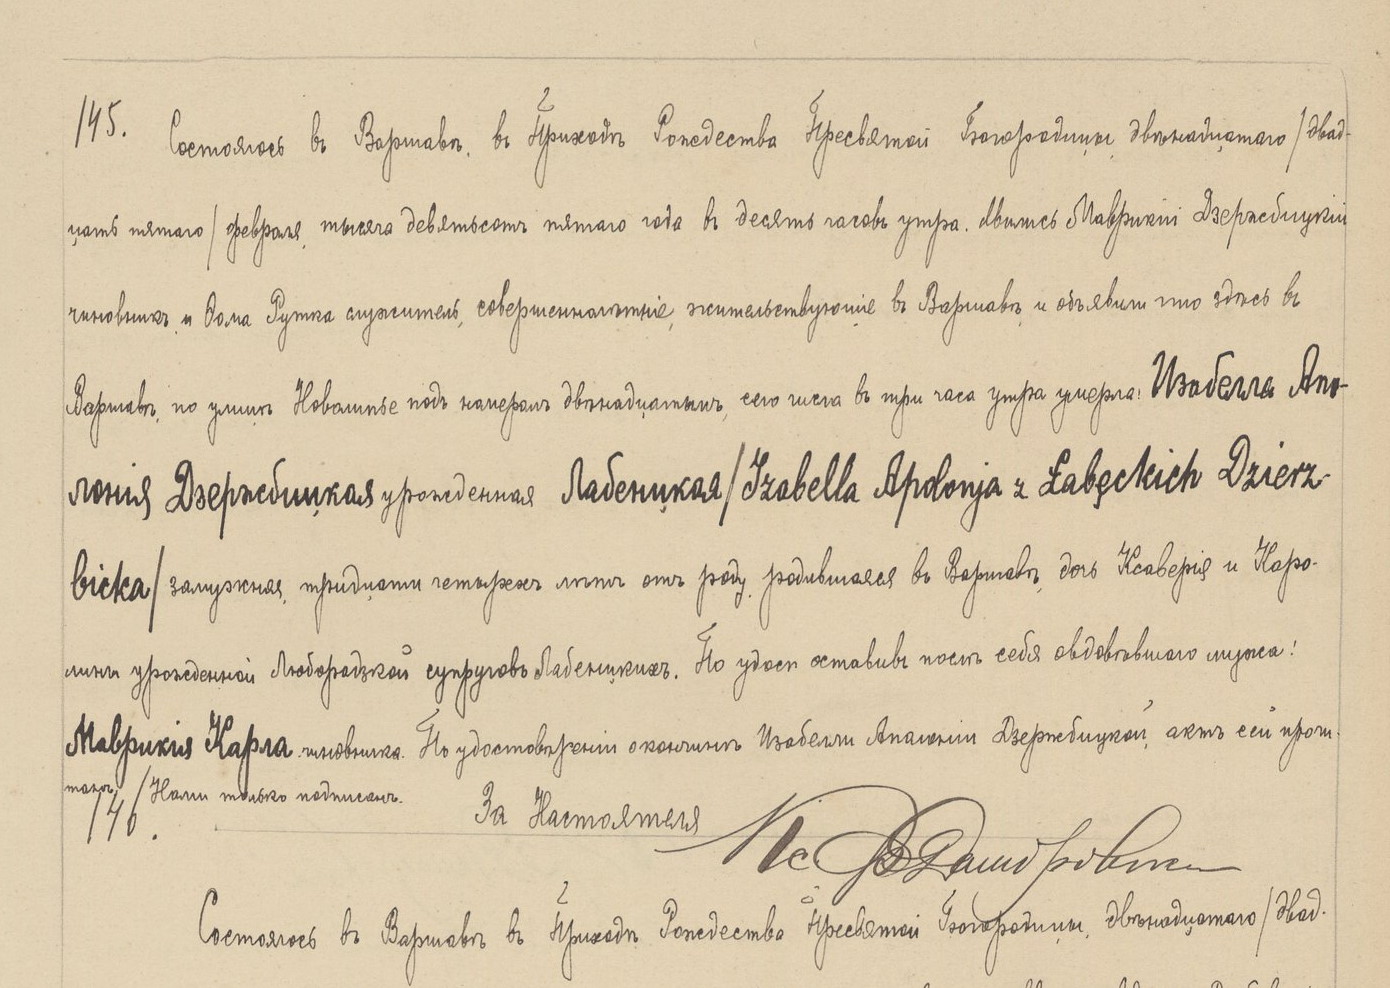 145. Состоялось въ Варшавѣ, въ Приходѣ Рождества Пресвятой Богородицы, двѣнадцатаго /двад-
цать пятаго/ февраля, тысяча девятьсотъ пятаго года въ десять часовъ утра. Явились Маврикій Дзержбицкій
чиновникъ, и Ѳома Рутка служитель, совершеннолѣтніе, жительствующіе въ Варшавѣ, и объявили что здѣсь въ
Варшавѣ, по улицѣ Новолипье подъ намеромъ двѣнадцатымъ, сего числа въ три часа утра умерла: Изабелла Апо-
лонія Дзержбицкая урожденная Лабенцкая/Izabella Apolonja z Łabęckich Dzierz-
bicka/ замужняя, тридцати четырехъ лѣтъ отъ роду, родившаяся въ Варшавѣ, дочь Ксаверія и Каро-
лины урожденной Люборадзкой супруговъ Лабенцкихъ. По удост оставивъ послѣ себя овдовѣвшаго мужа:
Маврикія Карла чиновника. По удостовѣреніи о кончинѣ Изабелли Аполоніи Дзержбицкой, актъ сей прочи-
танъ, Нами только подписанъ.
За Настоятеля
146.
Состоялось въ Варшавѣ въ Приходѣ Рождества Пресвятой Богородицы, двѣнадцатаго /двад-